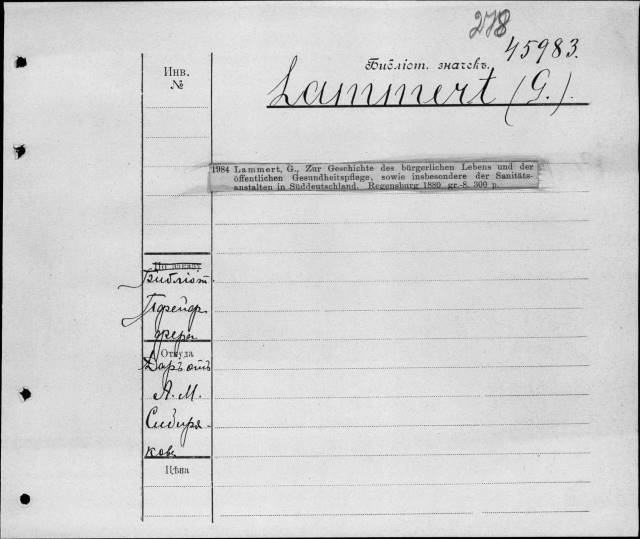 278
45983.
Библіот. значекъ.
Инв.
№
Lammert (G.).
1984 Lammert, G., Zur Geschichte des bürgerlichen Lebens und der
öffentlichen Gesundheitspflege, sowie insbesondere der Sanitäts-
anstalten in Süddeutschland. Regensburg 1880 gr.-8. 300 p.
Библіот.
Пфейф-
фера
Откуда
Даръ отъ
А. М.
Сибиря-
кова
Цѣна